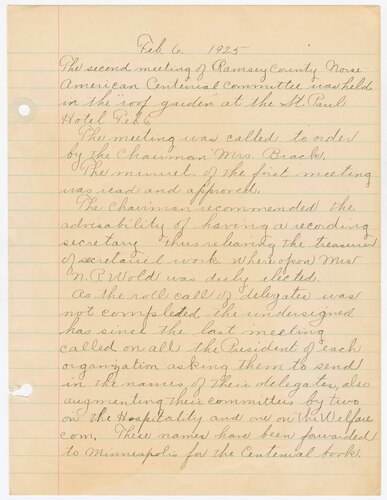 Feb. 6. 1925
The second meeting of Ramsey County Norse-
American Centenial Committee was held
in the "roof garden" at the St. Paul
Hotel Feb. 6.
The meeting was called to order
by the Chairman Mrs. Brack.
The minutes of the first meeting
was read and approved.
The Chairman recommended the
advisability of having a recording
secretary thus relieving the treasurer
of secretarial work. Where upon Mrs
N. P. Wold was duly elected.
As the roll call of delegates was
not completed the undersigned
has since the last meeting
called on all the President of each
organization asking them to send
in the names, of their delegates, also
augmenting their committees by two
on the Hospitality and one on the Welfare
com. These names have been forwarded
to Minneapolis for the Centenial book.